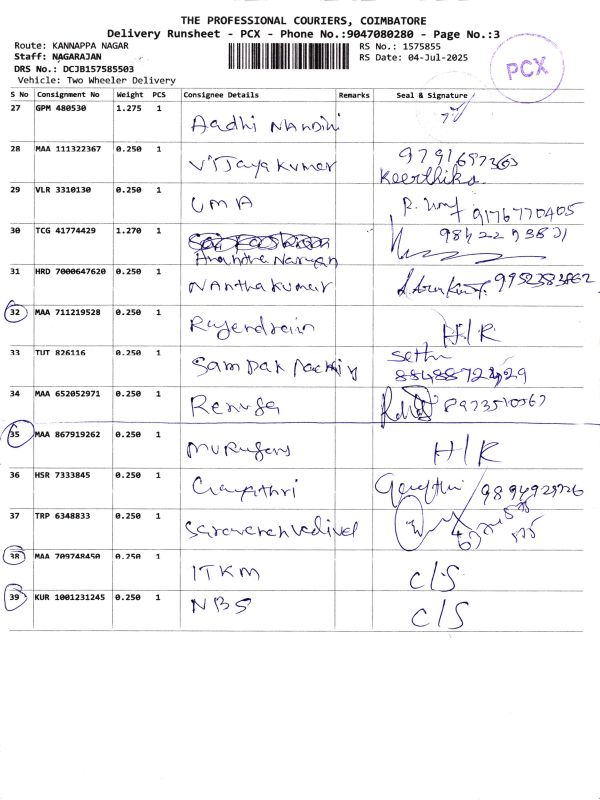 THE PROFESSIONAL COURIERS, COIMBATORE
Delivery Runsheet - PCX - Phone No.:9047080280 - Page No.:3
Route: KANNAPPA NAGAR
RS No.: 1575855
Staff: NAGARAJAN
RS Date: 04-Jul-2025
DRS No.: DCJB157585503
Vehicle: Two Wheeler Delivery
PCX
S No Consignment No Weight PCS Consignee Details Remarks Seal & Signature
27 GPM 480530 1.275 1
Aadhi Nandini
28 MAA 111322367 0.250 1
Vijaya Kumar
Keerthika
29 VLR 3310130 0.250 1
UMA 9176770405
30 TCG 41774429 1.270 1
31 HRD 7000647620 0.250 1
Nantha Kumar
32 MAA 711219528 0.250 1
Rajendrain H/R
33 TUT 826116 0.250 1
Sethu
34 MAA 652052971 0.250 1
Renuga
35 MAA 867919262 0.250 1
H/R
36 HSR 7333845 0.250 1
Gayathri
37 TRP 6348833 0.250 1
38 MAA 709748450 0.250 1
ITKM C/S
39 KUR 1001231245 0.250 1
NBS C/S